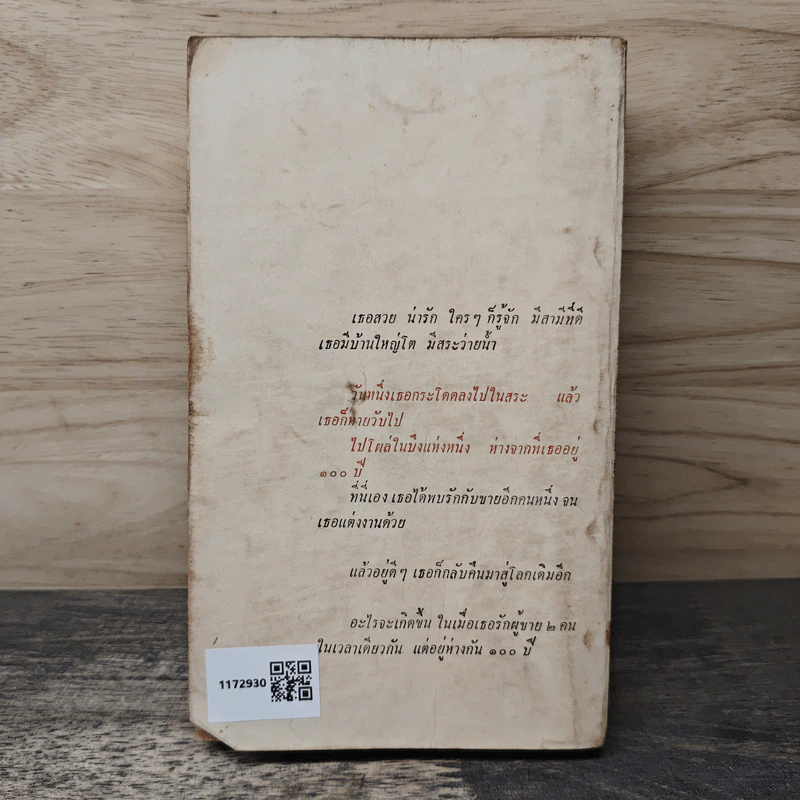 เธอสวย น่ารัก ใครๆ ก็รู้จัก มีสามีที่ดี
เธอมีบ้านใหญ่โต มีสระว่ายน้ำ
วันหนึ่งเธอกระโดดลงไปในสระ แล้ว
เธอก็หายวับไป
ไปโผล่ในบึงแห่งหนึ่ง ห่างจากที่เธออยู่
๑๐๐ ปี
ที่นี่เอง เธอได้พบรักกับชายอีกคนหนึ่ง จน
เธอแต่งงานด้วย
แล้วอยู่ดีๆ เธอก็กลับคืนมาสู่โลกเดิมอีก
อะไรจะเกิดขึ้น ในเมื่อเธอรักผู้ชาย ๒ คน
ในเวลาเดียวกัน แต่อยู่ห่างกัน ๑๐๐ ปี
1172930